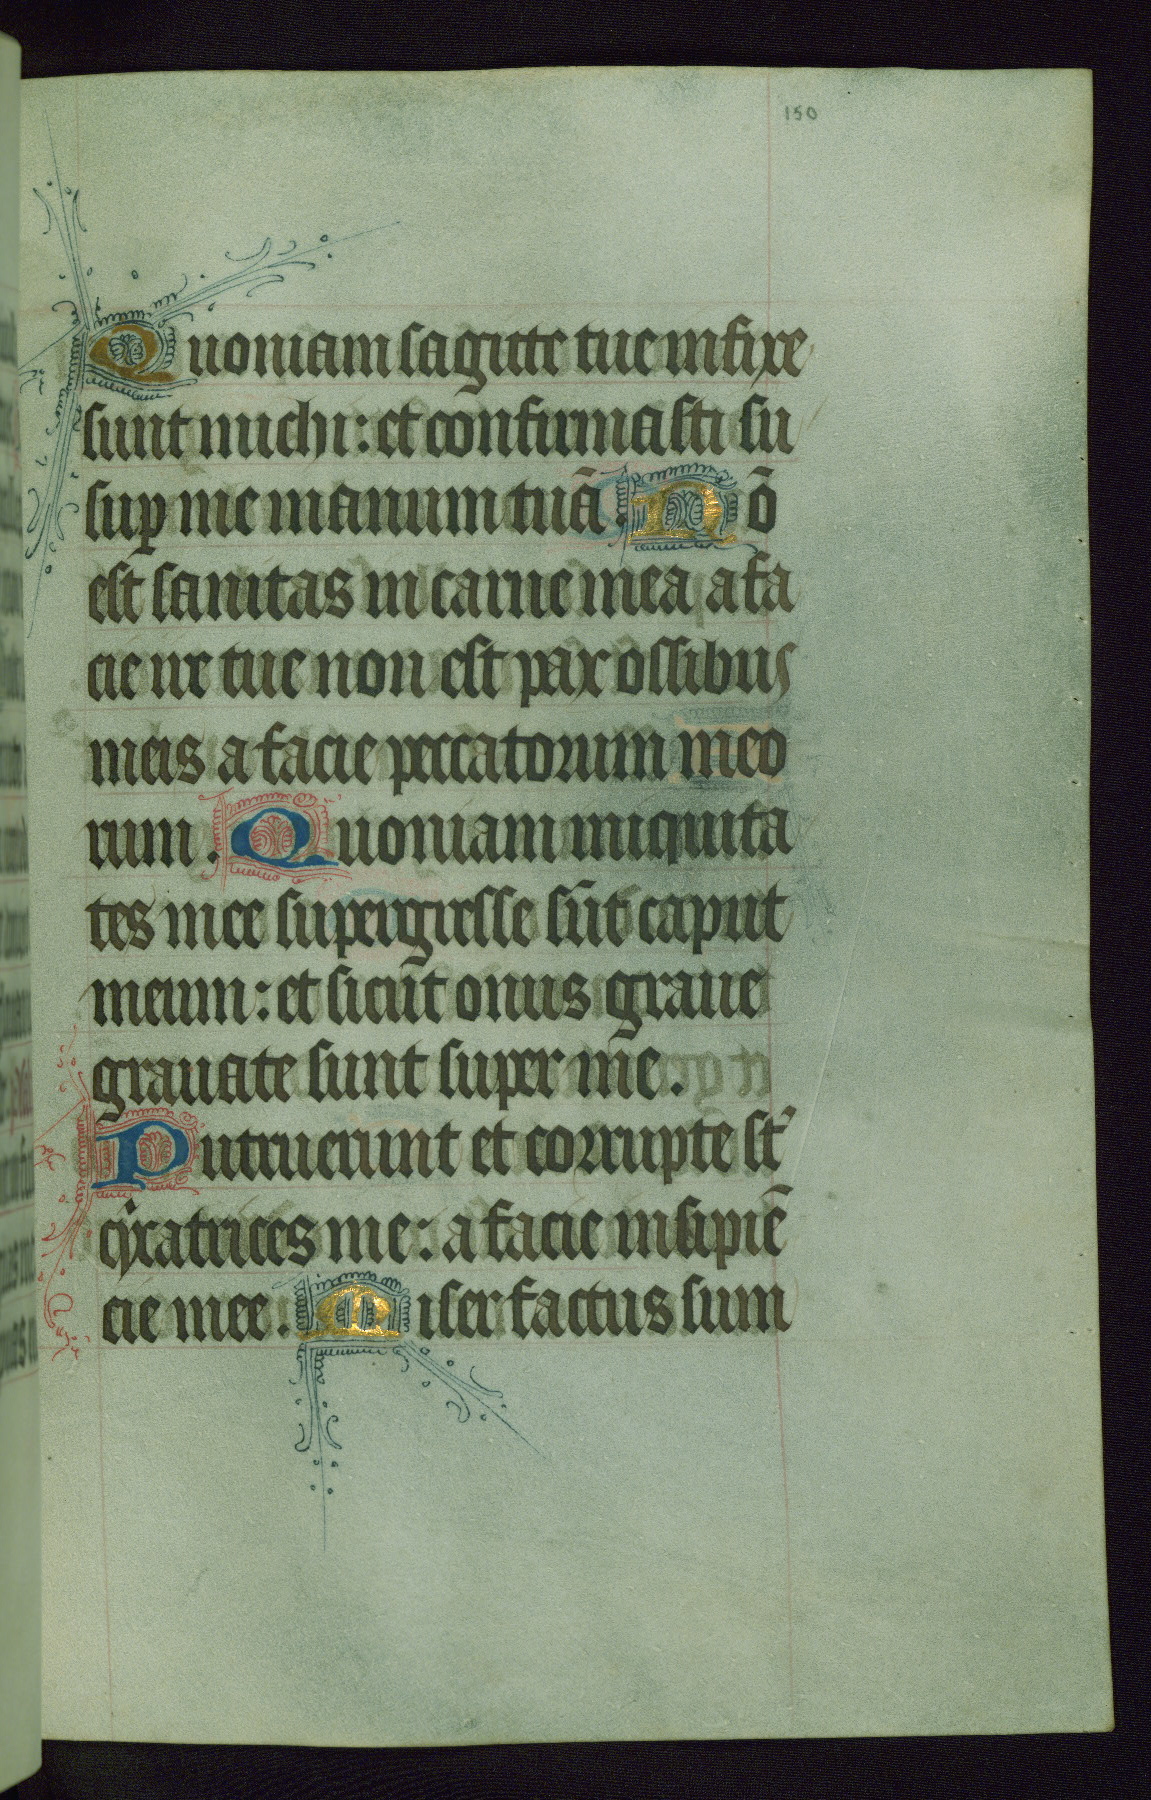 150
Quoniam sagitte tue infixe
sunt michi: et confirmasti su
sup me manum tuā. Nō
est sanitas in carne mea a fa
cie ire tue non est pax ossibus
meis a facie peccatorum meo
rum. Quoniam iniquita
tes mee supergresse sūt caput
meum: et sicut onus graue
grauate sunt super me.
Putruerunt et corrupte st
cicatrices mee: a facie insipiē
cie mee. Miser factus sum